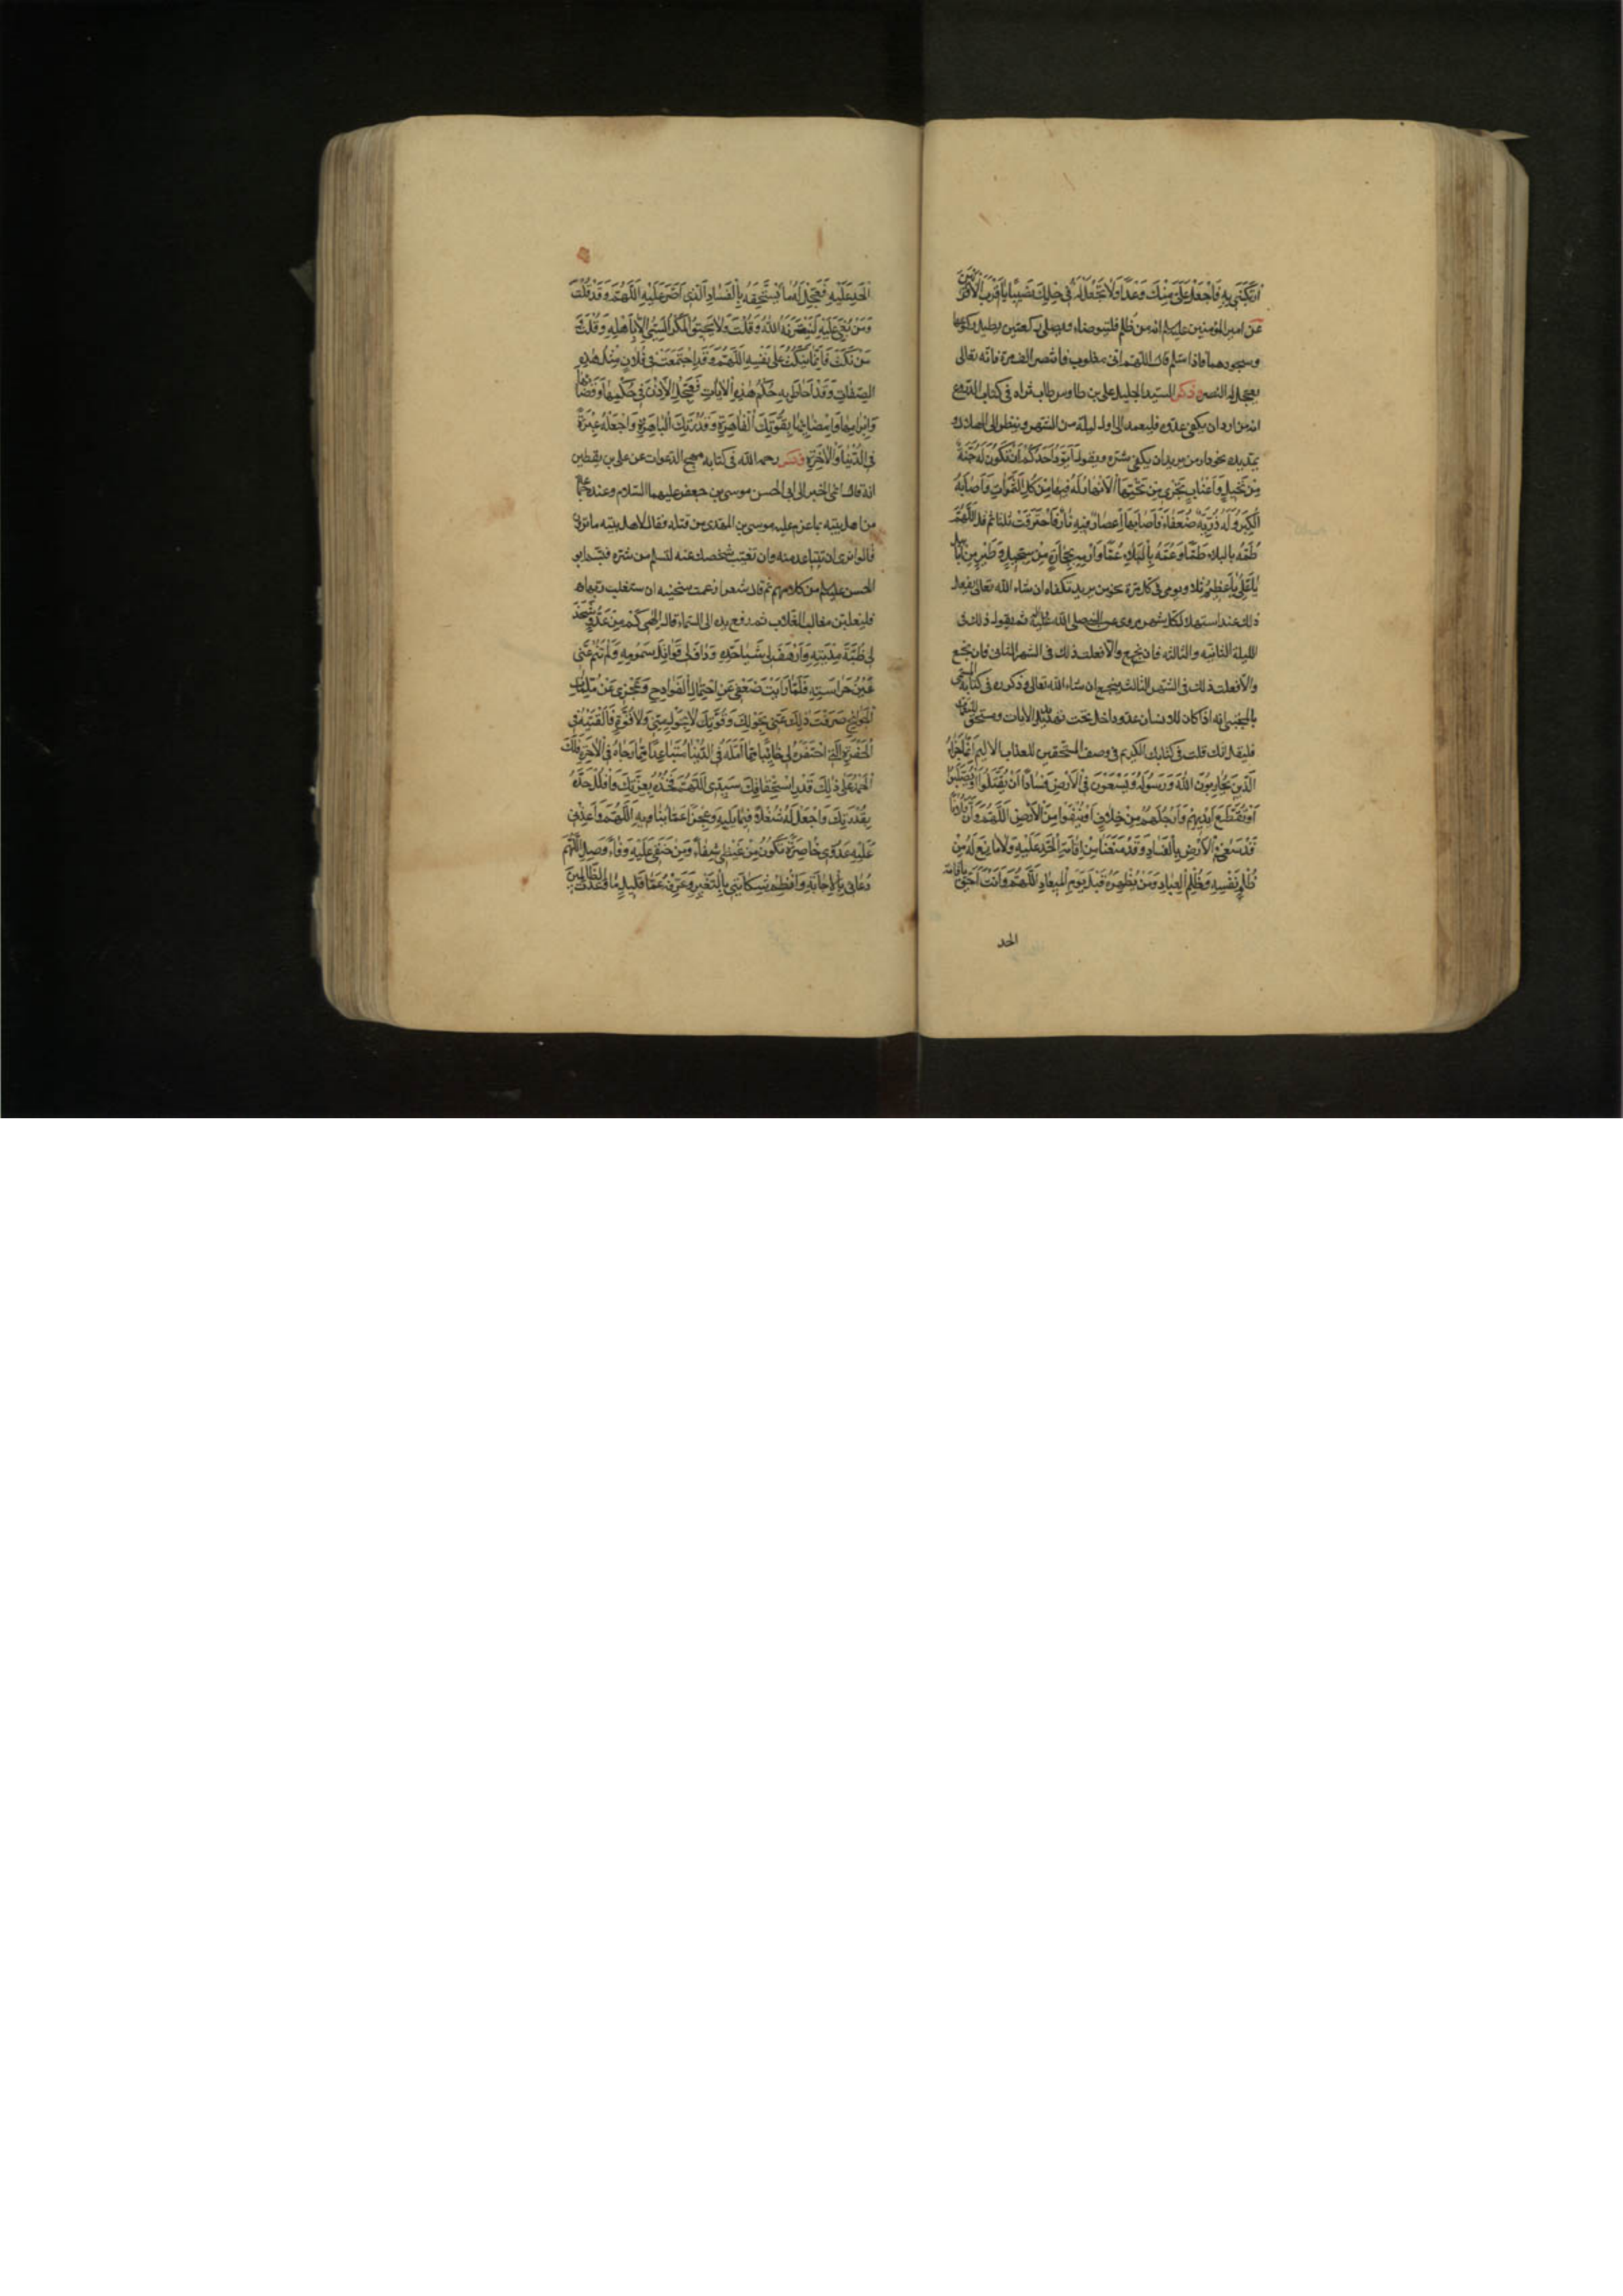 ارتكبني به فاجعل علي منك وعدا ولا تجعل له في حلمك نصيبا يا اقرب الاقربين
عن امير المؤمنين عليه السلام انه من ظلم فليتوضاء وليصلي ركعتين يطيل ركوعهما
وسجودهما فاذا سلم قال اللهم اني مغلوب فانتصر الف مرة فانه تعالى
يعجل له النصر وذكر السيد الجليل علي بن طاوس طاب ثراه في كتاب
انه من اراد ان يكفى عدوه فليعمد الى اول ليلة من الشهر وينظر الى الهلال و
بيده نحو دار من يريد ان يكفى شره ويقول اَيَوَدُّ اَحَدُكُمْ اَنْ تَكُونَ لَهُ جَنَّةٌ
مِنْ نَخِيلٍ وَاَعْنَابٍ تَجْرِي مِنْ تَحْتِهَا الْاَنْهَارُ لَهُ فِيهَا مِنْ كُلِّ الثَّمَرَاتِ وَاَصَابَهُ
الْكِبَرُ وَلَهُ ذُرِّيَّةٌ ضُعَفَاءُ فَاَصَابَهَا اِعْصَارٌ فِيهِ نَارٌ فَاحْتَرَقَتْ ثلثا ثم قل اللهم
طُمَّهُ بالبلاء طَمًّا وَعُمَّهُ بِالْبَلَاءِ عَمًّا وَارْمِهِ بِحِجَارَةٍ مِنْ سِجِّيلٍ وَطَيْرٍ مِنْ اَبَابِيل
يَا عَلِيُّ يَا عَظِيمُ ثلاثا ويومي في كل مرة نحو من يريد تكفاه ان شاء الله تعالى يفعل
ذلك عند استهلال كل شهر مروى عن النبي صلى الله عليه وآله ثم يقول ذلك في
الليلة الثانية والثالثة فان نجع والا فعلت ذلك في الشهر الثاني فان نجع
والا فعلت ذلك في الشهر الثالث ينجع ان شاء الله تعالى وذكر ره في كتابه المسمى
بالمجتبى انه اذا كان للانسان عدو داخل تحت تهديد الايات ومستحق للنقمات
فليقل انك قلت في كتابك الكريم في وصف المستحقين للعذاب الاليم اِنَّمَا جَزَاءُ
الَّذِينَ يُحَارِبُونَ اللّٰهَ وَرَسُولَهُ وَيَسْعَوْنَ فِي الْاَرْضِ فَسَادًا اَنْ يُقَتَّلُوا اَوْ يُصَلَّبُوا
اَوْ تُقَطَّعَ اَيْدِيهِمْ وَاَرْجُلُهُمْ مِنْ خِلَافٍ اَوْ يُنْفَوْا مِنَ الْاَرْضِ اَللّٰهُمَّ وَاِنَّ فُلَانًا
قَدْ سَعٰى فِي الْاَرْضِ بِالْفَسَادِ وَقَدْ مَنَعَنَا مِنْ اِقَامَةِ الْحَدِّ عَلَيْهِ وَلَا مَانِعَ لَهُ مِنْ
ظُلْمِ نَفْسِهِ وَظُلْمِ الْعِبَادِ وَمَنْ يُطَهِّرُهُ قَبْلَ يَوْمِ الْمِيعَادِ اَللّٰهُمَّ وَاَنْتَ اَحَقُّ بِاقَامَة
الحد
الْحَدِّ عَلَيْهِ فَعَجِّلْ لَهُ مَا يَسْتَحِقُّهُ بِالْفَسَادِ الَّذِي اَصَرَّ عَلَيْهِ اَللّٰهُمَّ وَقَدْ قُلْتَ
وَمَنْ بُغِيَ عَلَيْهِ لَيَنْصُرَنَّهُ اللّٰهُ وَقُلْتَ وَلَا يَحِيقُ الْمَكْرُ السَّيِّئُ اِلَّا بِاَهْلِهِ وَقُلْتَ
مَنْ نَكَثَ فَاِنَّمَا يَنْكُثُ عَلَى نَفْسِهِ اَللّٰهُمَّ وَقَدِ اجْتَمَعَتْ فِي فُلَانٍ مِثْلُ هٰذِهِ
الصِّفَاتِ وَقَدْ اَحَاطَ بِهِ حُكْمُ هٰذِهِ الْاٰيَاتِ فَعَجِّلِ الْاِذْنَ فِي حُكْمِهَا وَقَضَائِهَا
وَاِبْرَامِهَا وَاِمْضَائِهَا بِقُوَّتِكَ الْقَاهِرَةِ وَقُدْرَتِكَ الْبَاهِرَةِ وَاجْعَلْهُ عِبْرَةً
فِي الدُّنْيَا وَالْاٰخِرَةِ وذكر رحمه الله في كتابه مهج الدعوات عن علي بن يقطين
انه قال انمى الخبر الى ابي الحسن موسى بن جعفر عليهما السلام وعنده جماعة
من اهل بيته بما عزم عليه موسى بن المهدي من قتله فقال لاهل بيته ما ترون
قالوا نرى ان تتباعد منه وان تغيب شخصك عنه لتسلم من شره فتبسم ابو
الحسن عليه السلام من كلامهم ثم قال شعر زعمت سخينة ان ستغلب ربها
فليغلبن مغالب الغلاب ثم رفع يده الى السماء قال اِلٰهِي كَمْ مِنْ عَدُوٍّ شَحَذَ
لِي ظُبَةَ مِدْيَتِهِ وَاَرْهَفَ لِي شَبَا حَدِّهِ وَدَافَ لِي قَوَاتِلَ سَمُومِهِ وَلَمْ تَنَمْ عَنِّي
عَيْنُ حَرَاسَتِهِ فَلَمَّا رَاَيْتَ ضَعْفِي عَنِ احْتِمَالِ الْفَوَادِحِ وَعَجْزِي عَنْ مُلِمَّاتِ
الْجَوَائِحِ صَرَفْتَ ذٰلِكَ عَنِّي بِحَوْلِكَ وَقُوَّتِكَ لَا بِحَوْلٍ مِنِّي وَلَا قُوَّةٍ فَاَلْقَيْتَهُ فِي
الْحَفِيرَةِ الَّتِي احْتَفَرَهُ لِي خَائِبًا مِمَّا اَمَّلَهُ فِي الدُّنْيَا مُتَبَاعِدًا مِمَّا رَجَاهُ فِي الْاٰخِرَةِ فَلَكَ
الْحَمْدُ عَلَى ذٰلِكَ قَدْرَ اسْتِحْقَاقِكَ سَيِّدِي اَللّٰهُمَّ فَخُذْهُ بِعِزَّتِكَ وَافْلُلْ حَدَّهُ
بِقُدْرَتِكَ وَاجْعَلْ لَهُ شُغْلًا فِيمَا يَلِيهِ وَعَجْزًا عَمَّا يُنَاوِيهِ اَللّٰهُمَّ وَاَعِدْنِي
عَلَيْهِ عَدْوًى حَاضِرَةً تَكُونُ مِنْ غَيْظِي شِفَاءً وَمِنْ حَنَقِي عَلَيْهِ وَفَاءً وَصِلِ اللّٰهُمَّ
دُعَائِي بِالْاِجَابَةِ وَانْظِمْ شِكَايَتِي بِالتَّغْيِيرِ وَعَرِّفْهُ عَمَّا قَلِيلٍ مَا وَعَدْتَ الظَّالِمِينَ